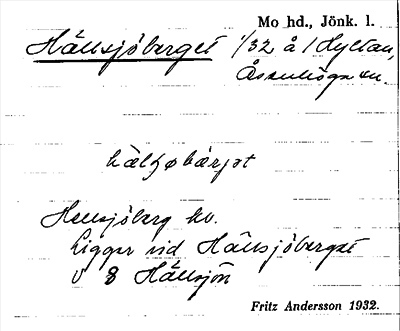 Mo hd., Jönk. l.
Hällsjöberget 1/32 å 1 Hyltan,
Åsenhöga sn.
hälʃøbärjət
Hellsjöberg kv.
Ligger vid Hällsjöberget
v Hällsjön
Fritz Andersson 1932.